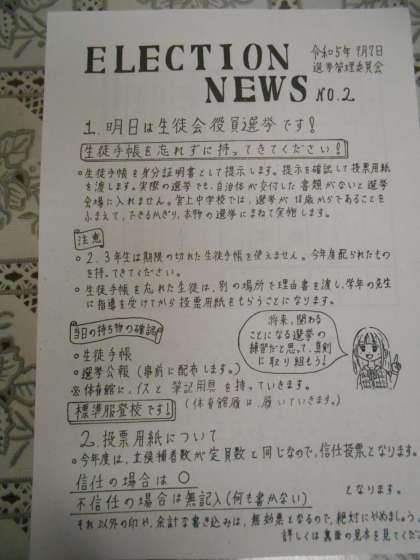 ELECTION NEWS NO.2
令和5年 9月7日
選挙管理委員会
1.明日は生徒会役員選挙です!
生徒手帳を忘れずに持ってきてください!
○生徒手帳を身分証明書として提示します。提示を確認して投票用紙
を渡します。実際の選挙でも、自治体が交付した書類がないと選挙
会場に入れません。堂上中学校では、選挙が18歳からであることを
ふまえて、できるかぎり、本物の選挙にまねて実施します。
注意
○2、3年生は期限の切れた生徒手帳を使えません。今年度配られたもの
を持ってきてください。
○生徒手帳を忘れた生徒は、別の場所で理由書を渡し、学年の先生
に指導を受けてから投票用紙をもらうことになります。
当日の持ち物の確認
○生徒手帳
○選挙公報(事前に配布します。)
※体育館に、イスと筆記用具を持っていきます。
標準服登校です!
(体育館履は、履いていきます。)
将来、関わる
ことになる選挙の
練習だと思って、真剣
に取り組もう!
2.投票用紙について
○今年度は、立候補者数が定員数と同じなので、信任投票となります。
信任の場合は ○
不信任の場合は無記入(何も書かない) となります。
それ以外の印や、余計な書き込みは、無効票となるので、絶対にやめましょう。
詳しくは裏面の見本を見てくださ